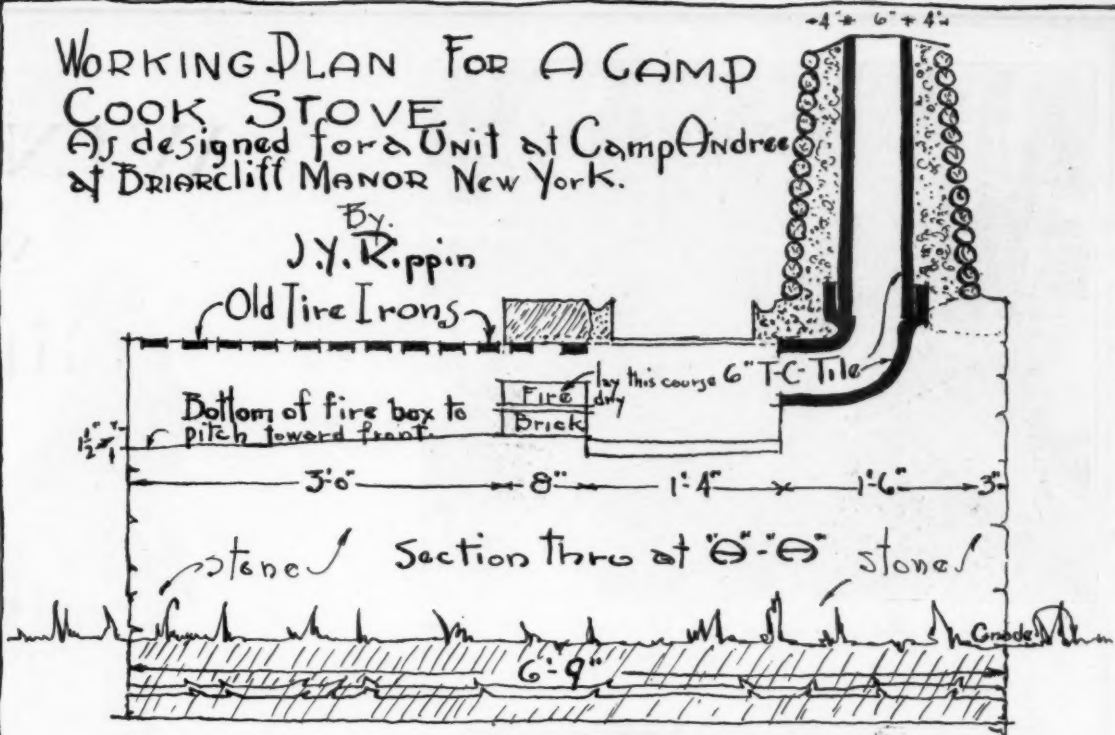 -4"+ 6" + 4"-
WORKING PLAN FOR A CAMP
COOK STOVE
As designed for a Unit at Camp Andree
at BRIARCLIFF MANOR New York.
By
J.Y. Rippin
Old Tire Irons
lay this course dry
6" T-C-Tile
Fire
Brick
Bottom of fire box to
pitch toward front.
3'-0" 8" 1'-4" 1'-6" 3"
Section thro at "A"-"A"
stone
stone
Grade
6'-9"